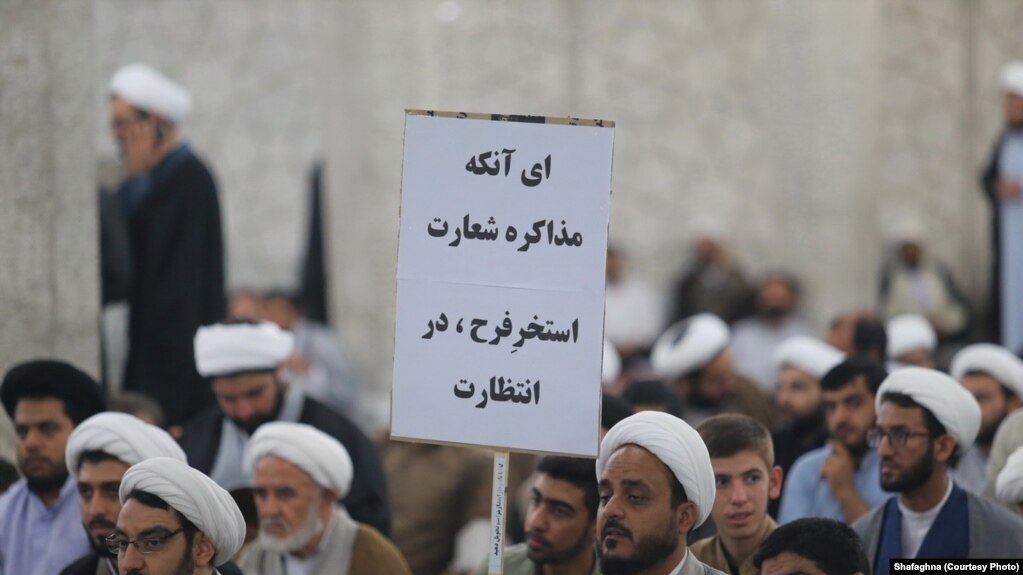 ای آنکه
مذاکره شعارت
استخرِفرح ، در
انتظارت
Shafaghna (Courtesy Photo)